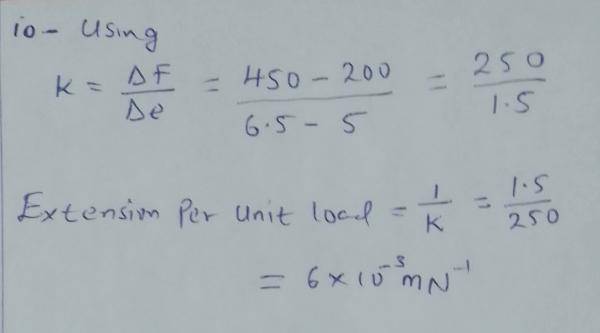 10- Using
K = ΔF/Δe = 450 - 200/6.5 - 5 = 250/1.5
Extension Per unit load = 1/K = 1.5/250
= 6 × 10⁻³ mN⁻¹